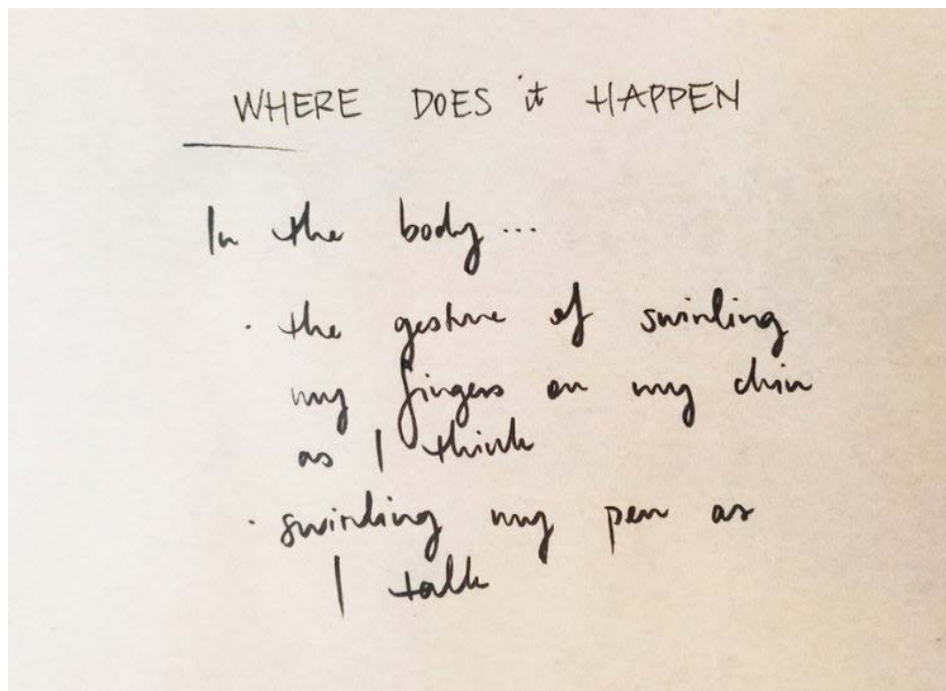 WHERE DOES it HAPPEN
In the body...
· the gesture of swirling
my fingers on my chin
as I think
· swirling my pen as
I talk